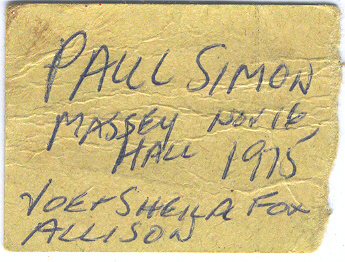 PAUL SIMON
MASSEY NOV 16
HALL 1975
JOE + SHEILA FOX
ALLISON